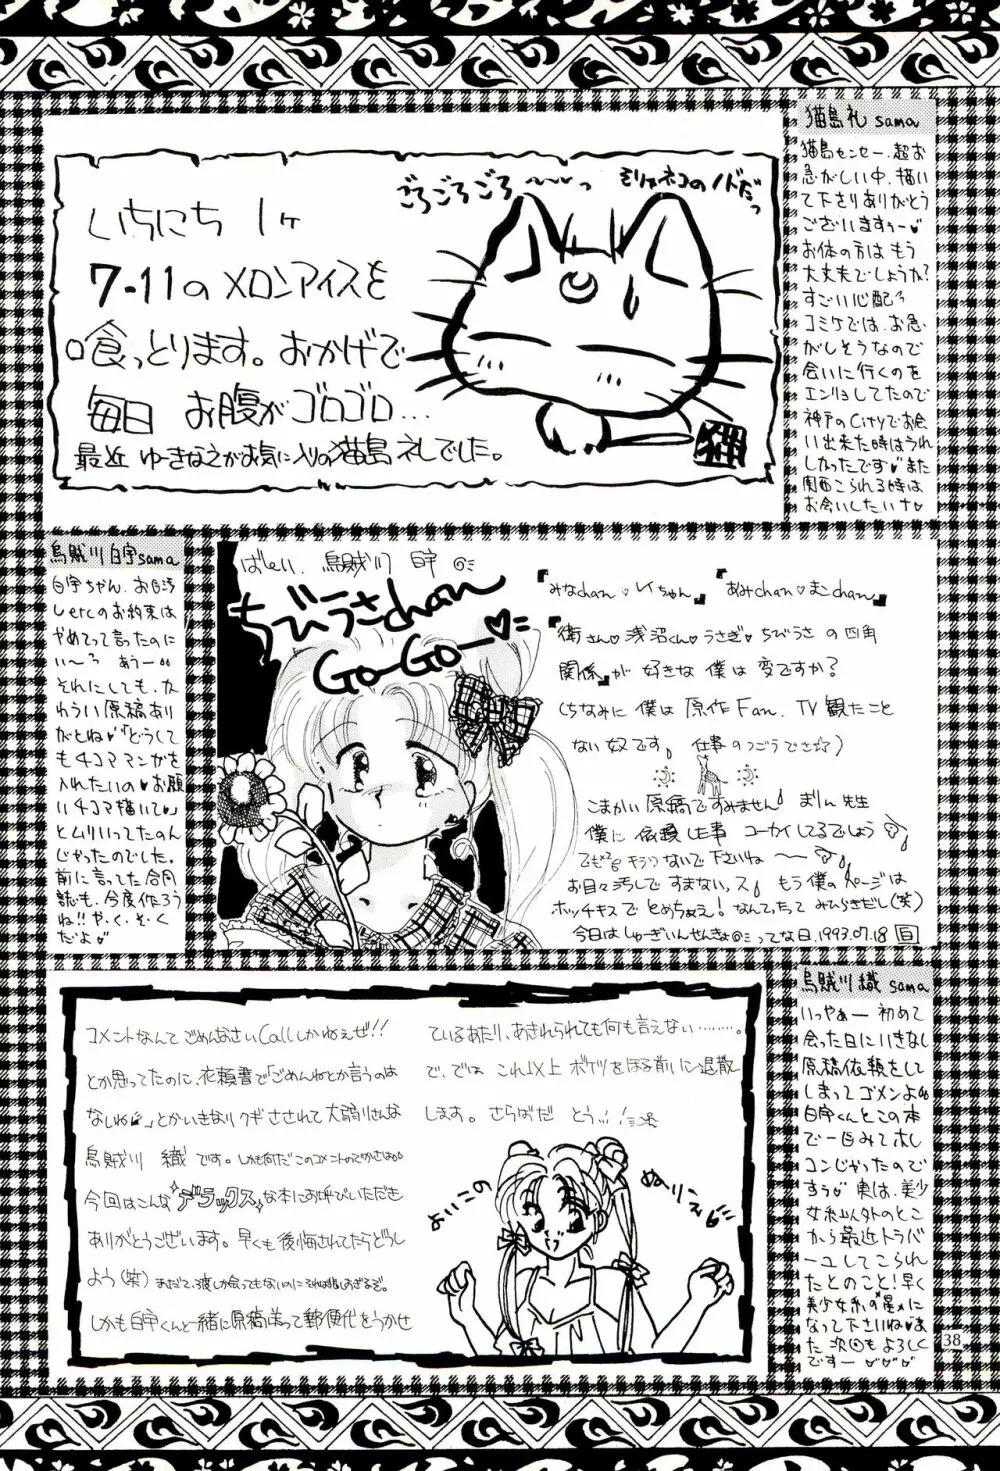 猫島礼 sama
猫島センセー、超お
急がしい中、描い
て下さりありがとう
ございますぅー♥
お体の方は もう
大丈夫でしょうか?
すごい心配
コミケでは、お急
がしそうなので
会いに行くのを
エンリョしてたので
神戸のCityでお会
い出来た時はうれ
しかったです♥また
関西こられる時は
お会いしたいナ♥
ごろごろごろ〜〜っ
いちにち 1ヶ
7-11の メロンアイスを
喰っとります。おかげで
毎日 お腹が ゴロゴロ…
最近 ゆーきなえがお気に入りの猫島 礼でした。
猫
烏賊川 白宇 sama
白宇ちゃん、お目汚
しetcのお約束は
やめてって言ったのに
い〜? あぅー
それにしても、か
わうい原稿あり
がとね♥どうして
も4コママンガを
入れたいの♥お願
い4コマ描いて♥」
とムリいってたのん
じゃったのでした。
前に言ってた合同
誌も、今度作ろう
ね!! や・く・そ・く
だよ♥
ばい 烏賊川 白宇
ちびうさchan
GO-GO-♥
『みなchan♥レイちゃん』『あみchan♥まこchan』
『衛さん♥浅沼くん♥うさぎ♥ちびうさ の四角
関係』が 好きな 僕は 変ですか?
ちなみに 僕は 原作Fan、TV観たこと
ない奴です。 仕事のつごうでさ☆)
こまかい 原稿ですみません。まりん先生
僕に 依頼した事 コーカイしてるでしょう
でもキラワないで下さいね〜
お目々汚しで すまないっス。 もう僕のページは
ホッチキスで とめちゃえ! なんてったって みひらきだし(笑)
今日は しゅーぎいんせんきょの日、1993.07.18 白
烏賊川 織 sama
いっやぁー 初めて
会った日にいきなし
原稿依頼をして
しまってゴメンよぉ
白宇くんとこの本
で一目みてホレ
コンじゃったので
すぅ♥ 実は、美少
女ネム以外のとこ
から最近トラバ
ーユしてこられ
たとのこと!早く
美少女系の星に
なって下さいね♥ま
た 次回もよろしく
ですー♥♥♥
コメントなんて ごめんなさいCallしかねぇぜ!!
とか思ってたのに、依頼書で「ごめんねとか言うのは
なしね♥」とかいきなりクギさされて大弱りさんな
烏賊川 織 です。しかも何だこのコメントのでかさは
今回はこんな デラックス な本にお呼びいただき
ありがとうございます。早くも後悔されてたらどうし
よう(笑) まだ1度しか会ってもないのにそれは悲しすぎるぞ。
しかも白宇くんと一緒に原稿送って郵便代をうかせ
ているあたり、あきれられても何も言えない………。
で、では これ以上 ボケツをほる前に退散
します。さらばだ とう…!
よいこの
ぬりえ
38